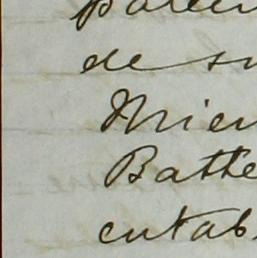 de su
Mien
Batte
entab